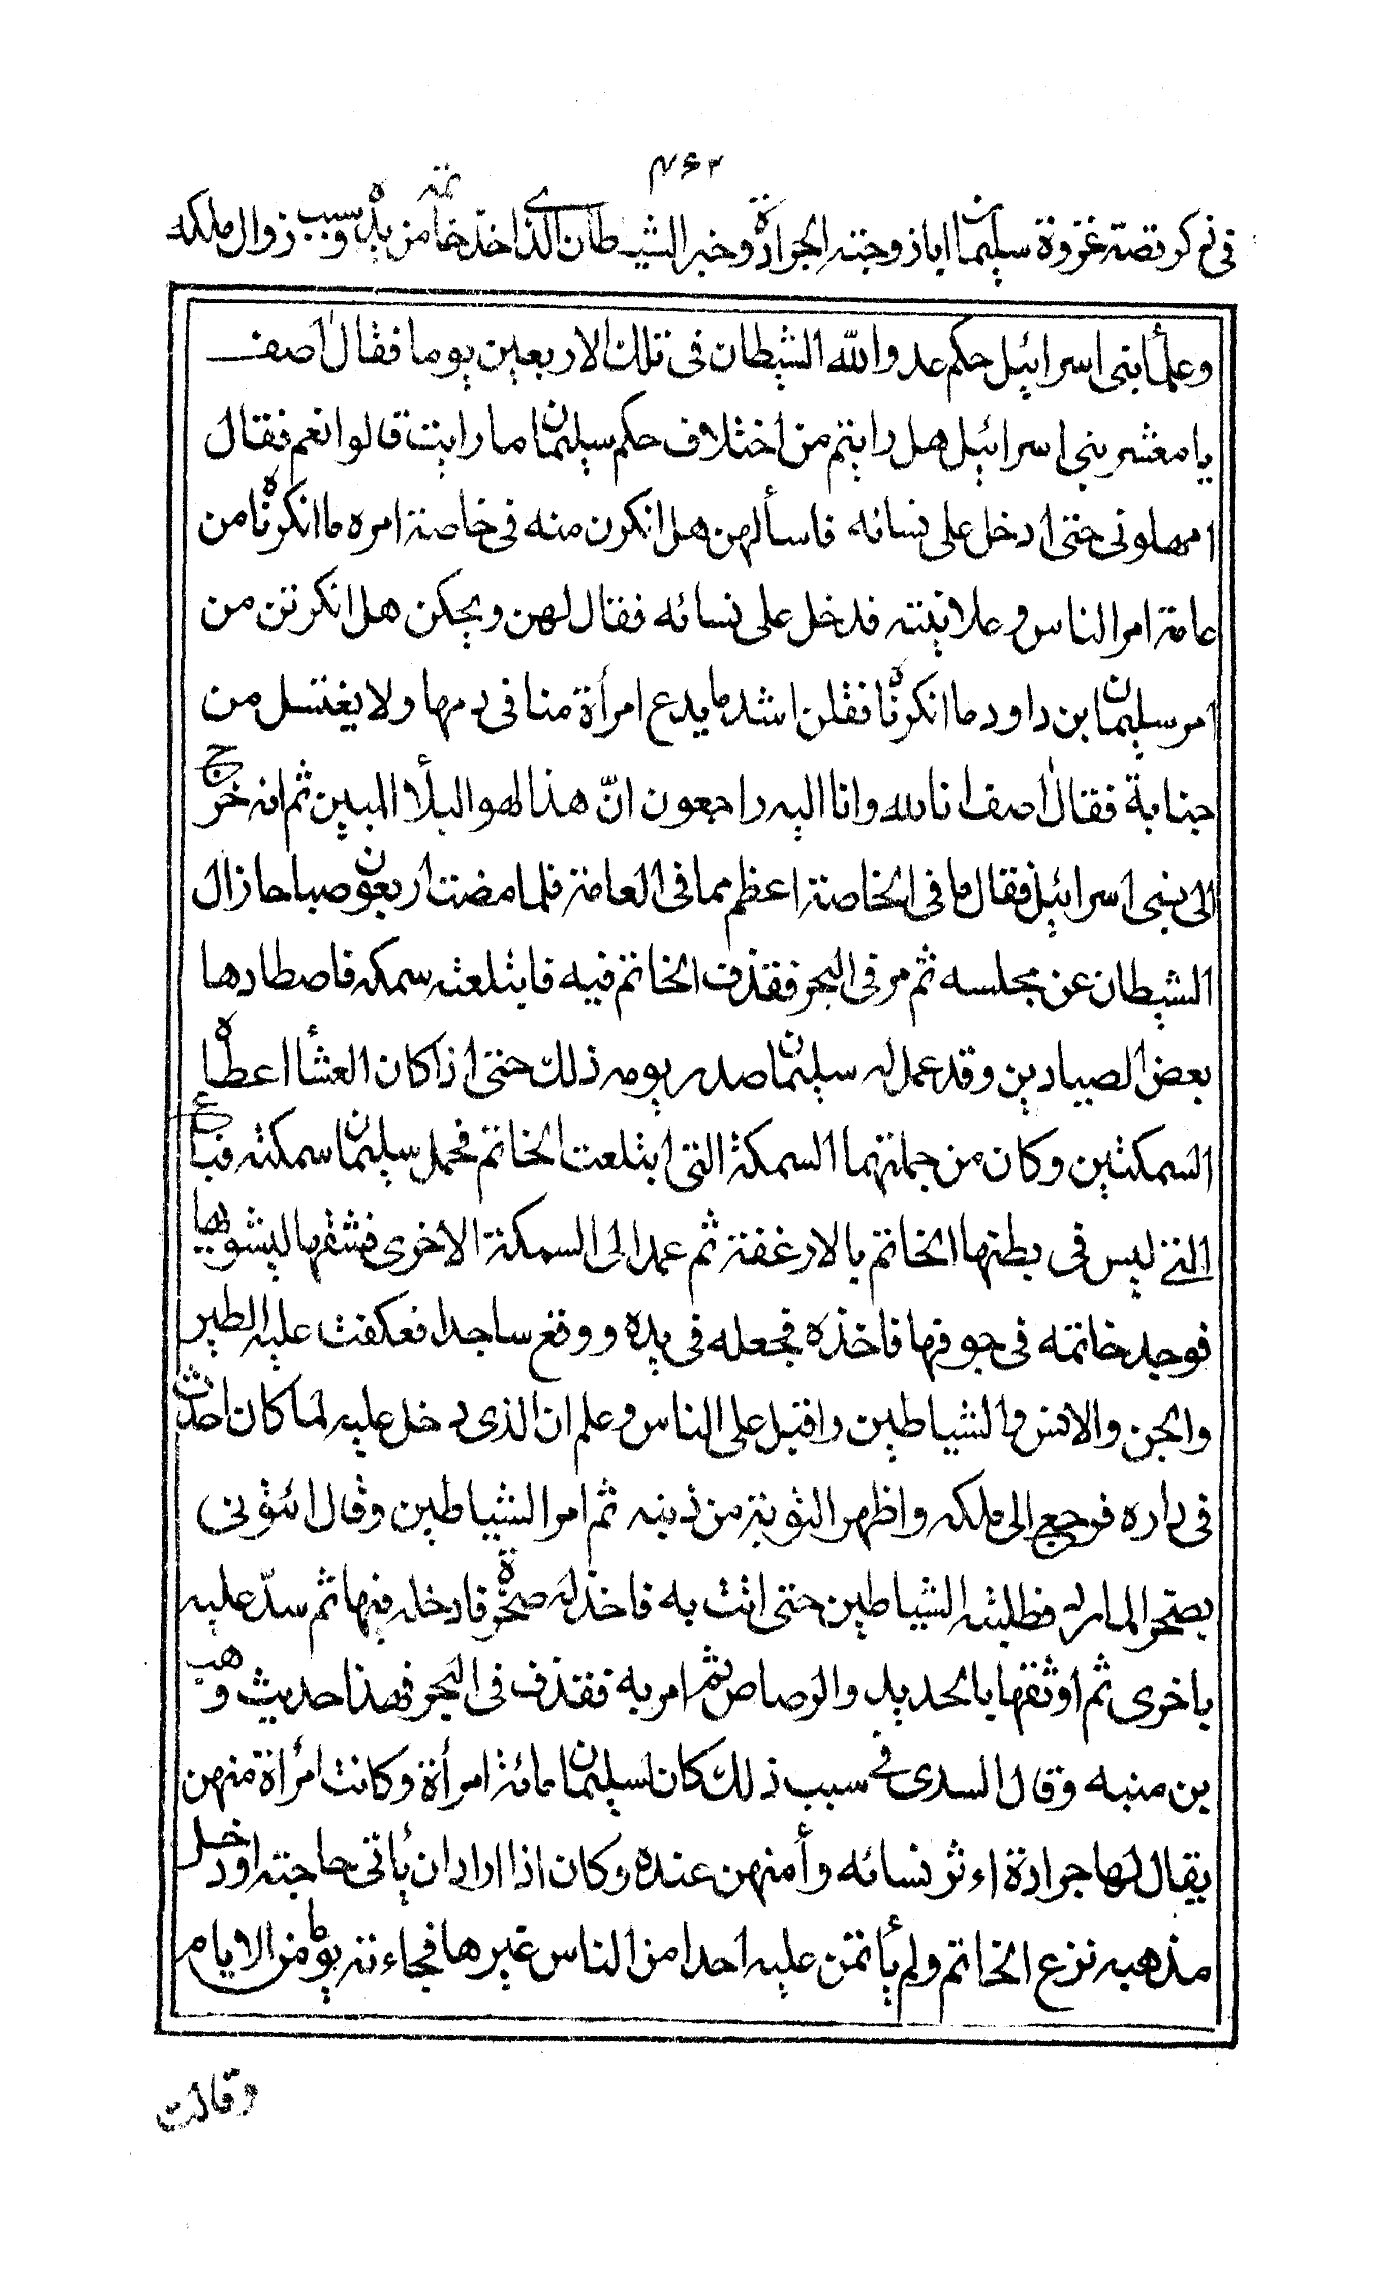 ۴۶۲
في ذكر قصة غزوة سليمان ابا زوجته الجرادة وخبر الشيطان الذي اخذ خاتمه من يده وسبب زوال ملكه
وعلمأ بنى اسرائيل حكم عدو الله الشيطان فى تلك الاربعين يوما فقال اصف
يا معشر بنى اسرائيل هل رايتم من اختلاف حكم سليمان ما رايت قالوا نعم فقال
امهلونى حتى ادخل على نسائه فاسألهن هل انكرن منه فى خاصة امره ما انكرناه من
عامة امر الناس وعلانيته فدخل على نسائه فقال لهن ويحكن هل انكرتن من
امر سليمان ابن داود ما انكرناه فقلن اشد ما يدع امرأة منا فى دمها ولا يغتسل من
جنابة فقال اصف انا لله وانا اليه راجعون انّ هذا لهو البلأ المبين ثم انه خرج
الى بنى اسرائيل فقال ما فى الخاصة اعظم مما فى العامة فلما مضت اربعون صباحا زال
الشيطان عن مجلسه ثم مر فى البحر فقذف الخاتم فيه فابتلعته سمكه فاصطادها
بعض الصيادين وقد عمل له سليمان صدر يومه ذلك حتى اذا كان العشأ اعطاه
السمكتين وكان من جملتهما السمكة التى ابتلعت الخاتم فحمل سليمان سمكته فباع
التى ليس فى بطنها الخاتم بالارغفة ثم عمد الى السمكة الاخرى فشقها ليشويها
فوجد خاتمه فى جوفها فاخذه فجعله فى يده ووقع ساجدا فعكفت عليه الطير
والجن والانس والشياطين واقبل على الناس وعلم ان الذى دخل عليه لما كان احدث
فى داره فرجع الى ملكه واظهر التوبة من ذنبه ثم امر الشياطين وقال ائتونى
بصخر المارد فطلبته الشياطين حتى اتت به فاخذ له صخرة فادخله فيها ثم سدّ عليه
باخرى ثم اوثقها بالحديد والرصاص ثم امر به فقذف فى البحر فهذا حديث وهب
بن منبه وقال السدى فى سبب ذلك كان لسليمان مائة امرأة وكانت امرأة منهن
يقال لها جرادة اءثر نسائه وأمنهن عنده وكان اذا اراد ان يأتى حاجته او دخل
مذهبه نزع الخاتم ولم يأتمن عليه احدا من الناس غيرها فجاءته يوما من الايام
وقالت